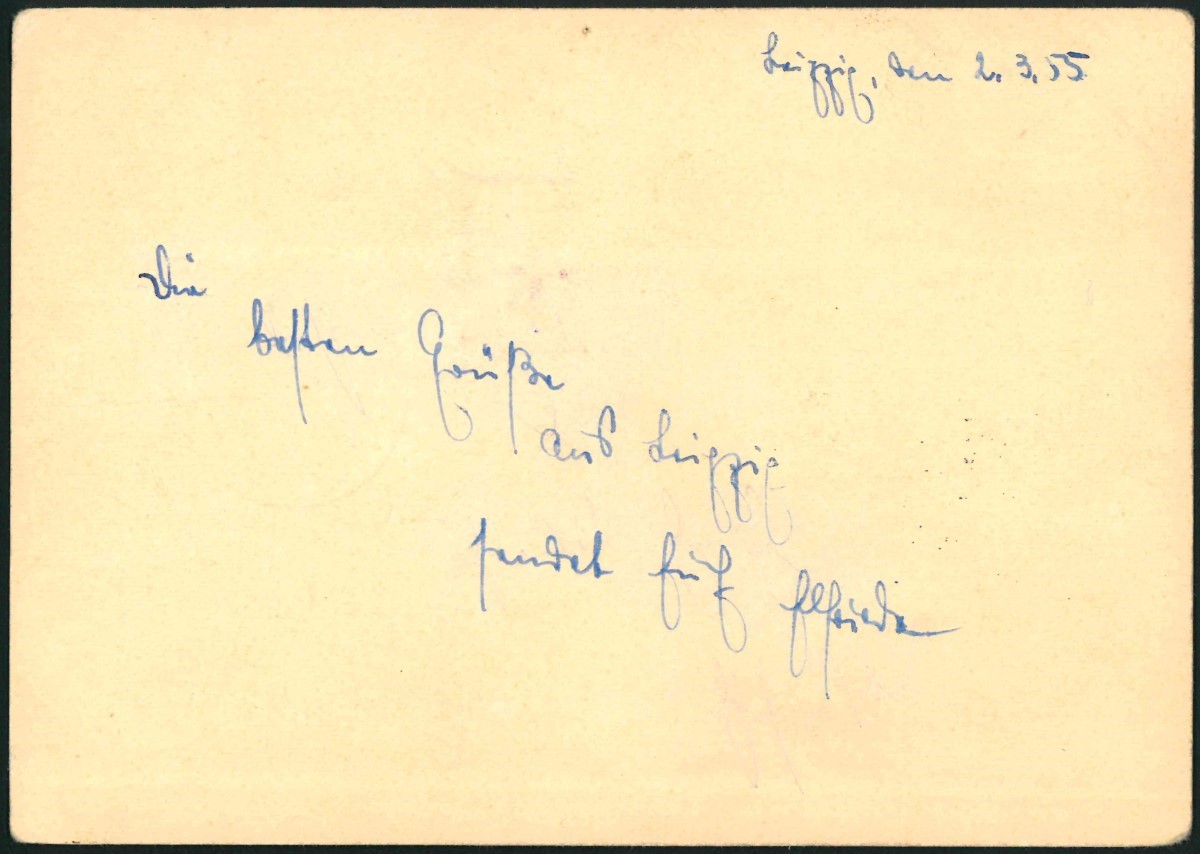 Leipzig, den 2. 3. 55
Die
besten Grüße
aus Leipzig
sendet Euch Elfriede